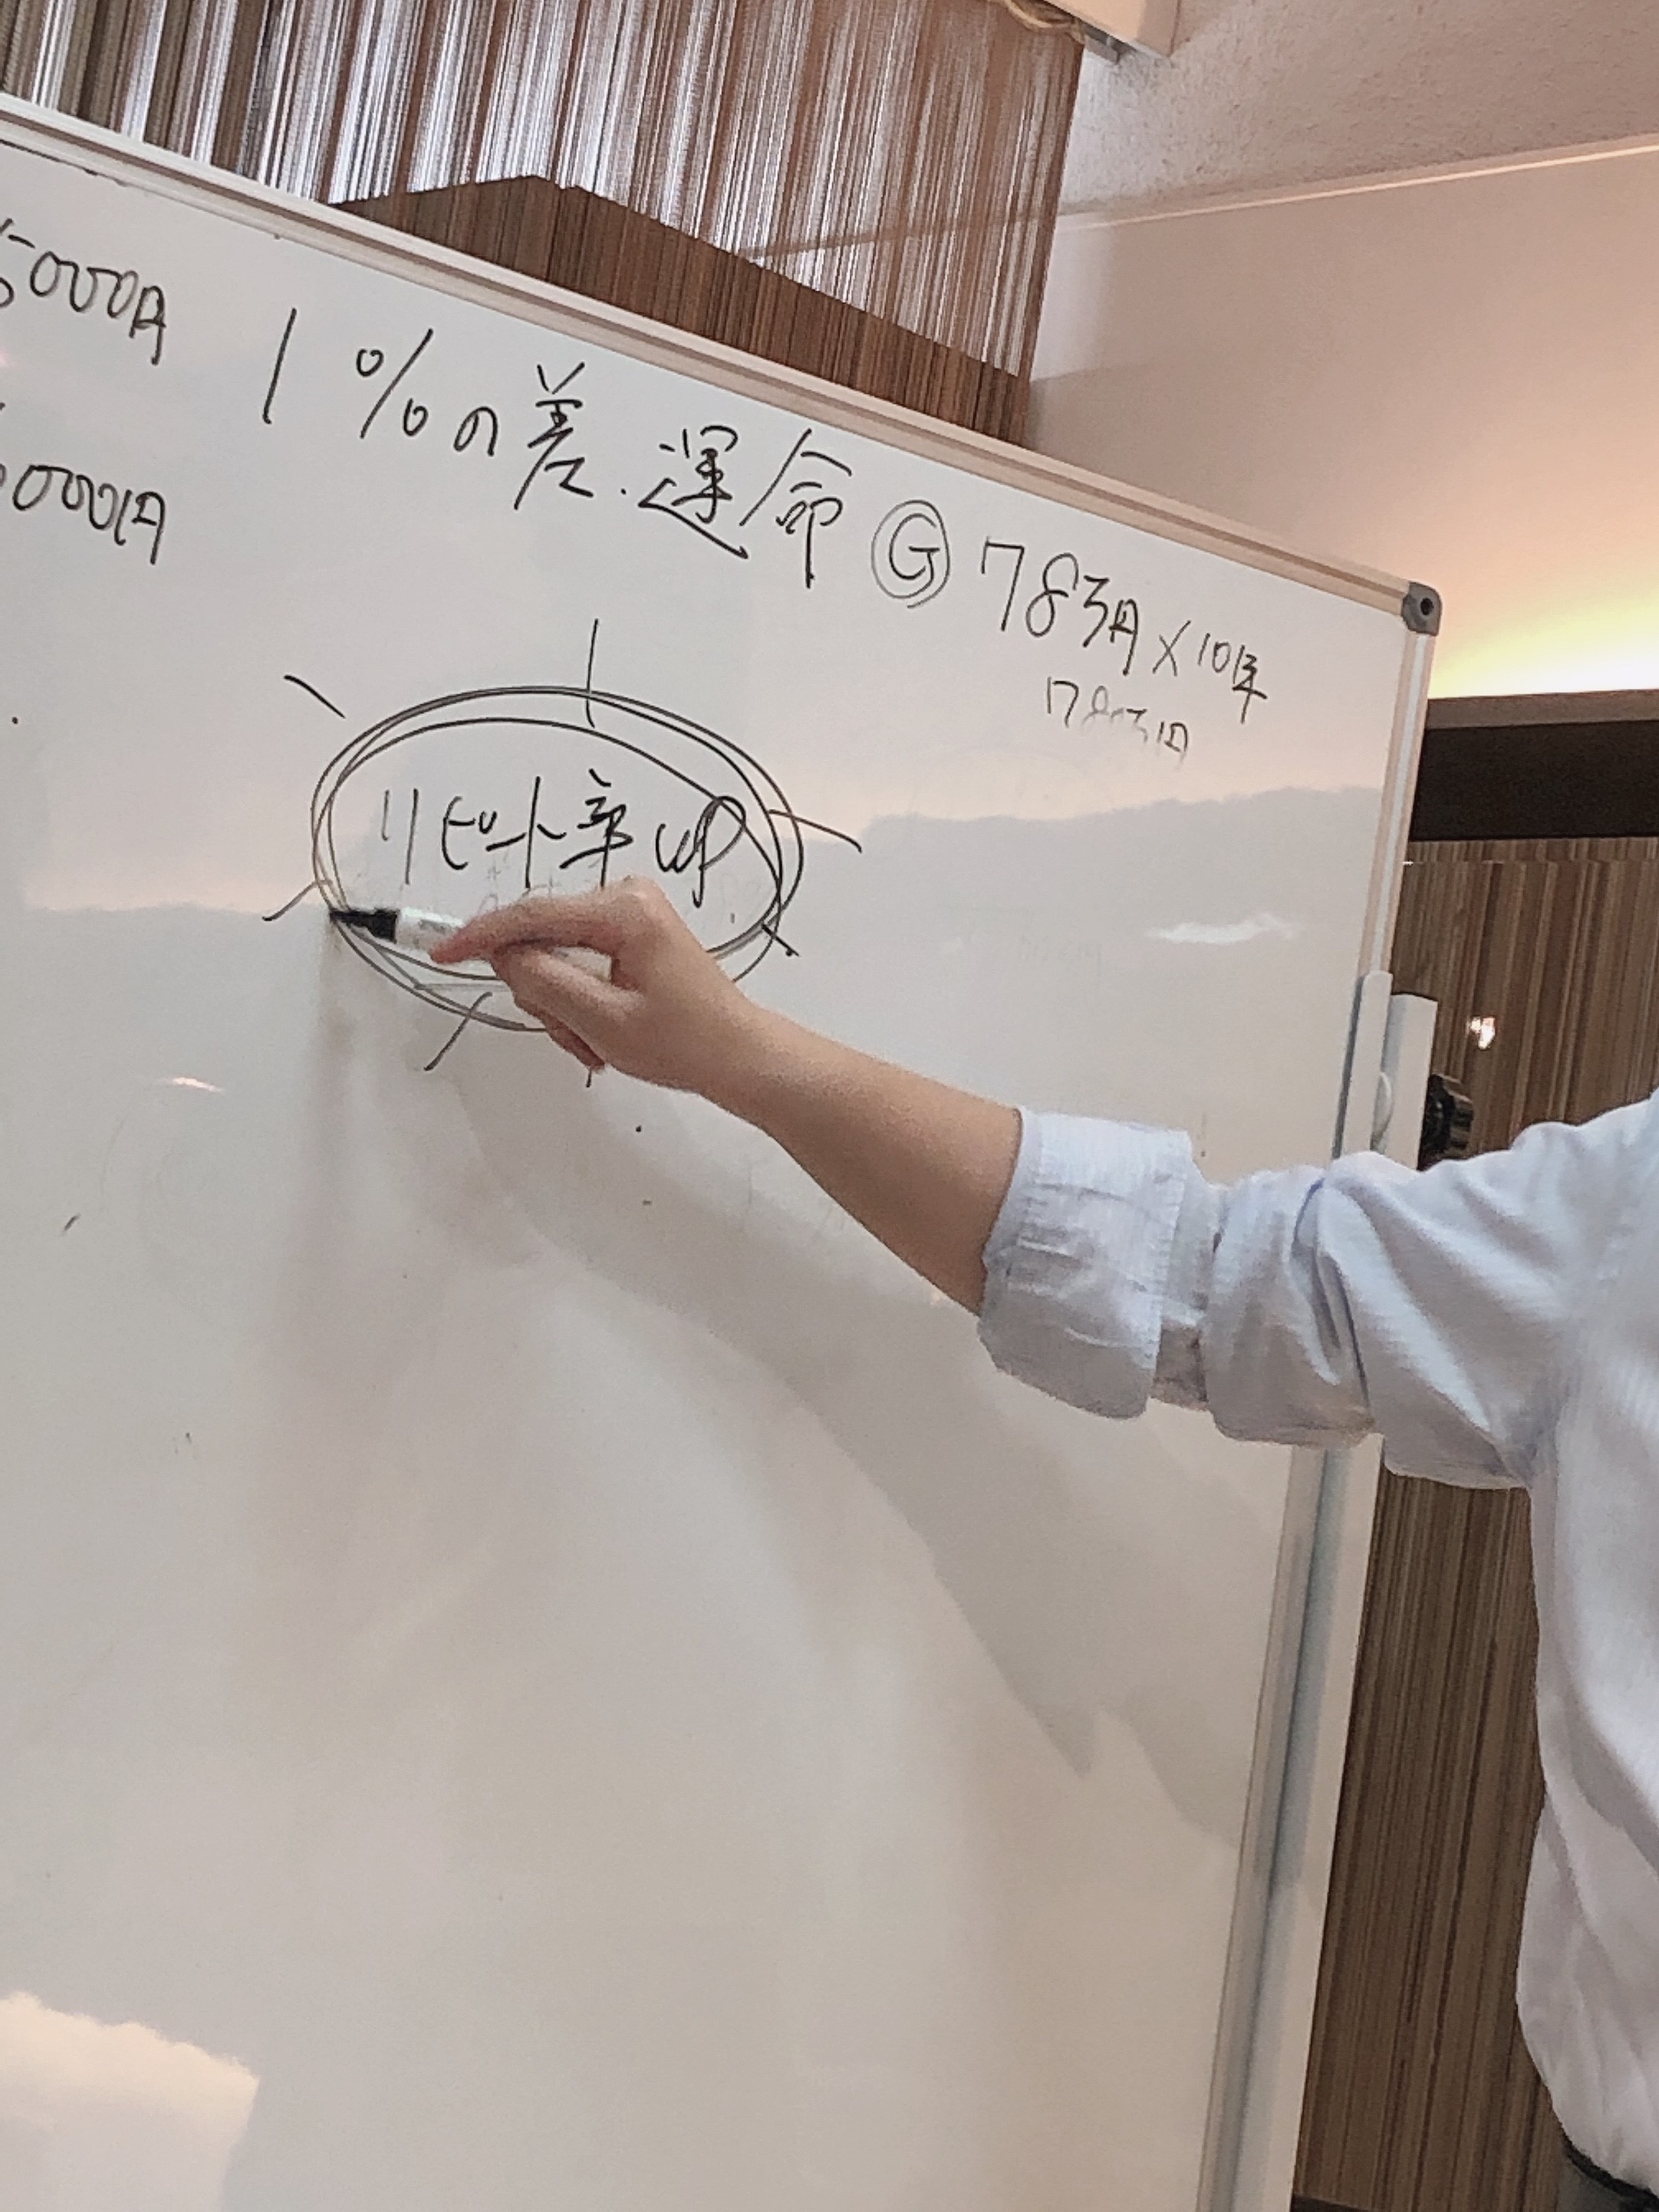 5000円
1%の差.運命 Ⓖ 78万円×10年
0000円
780万円
リピート率up